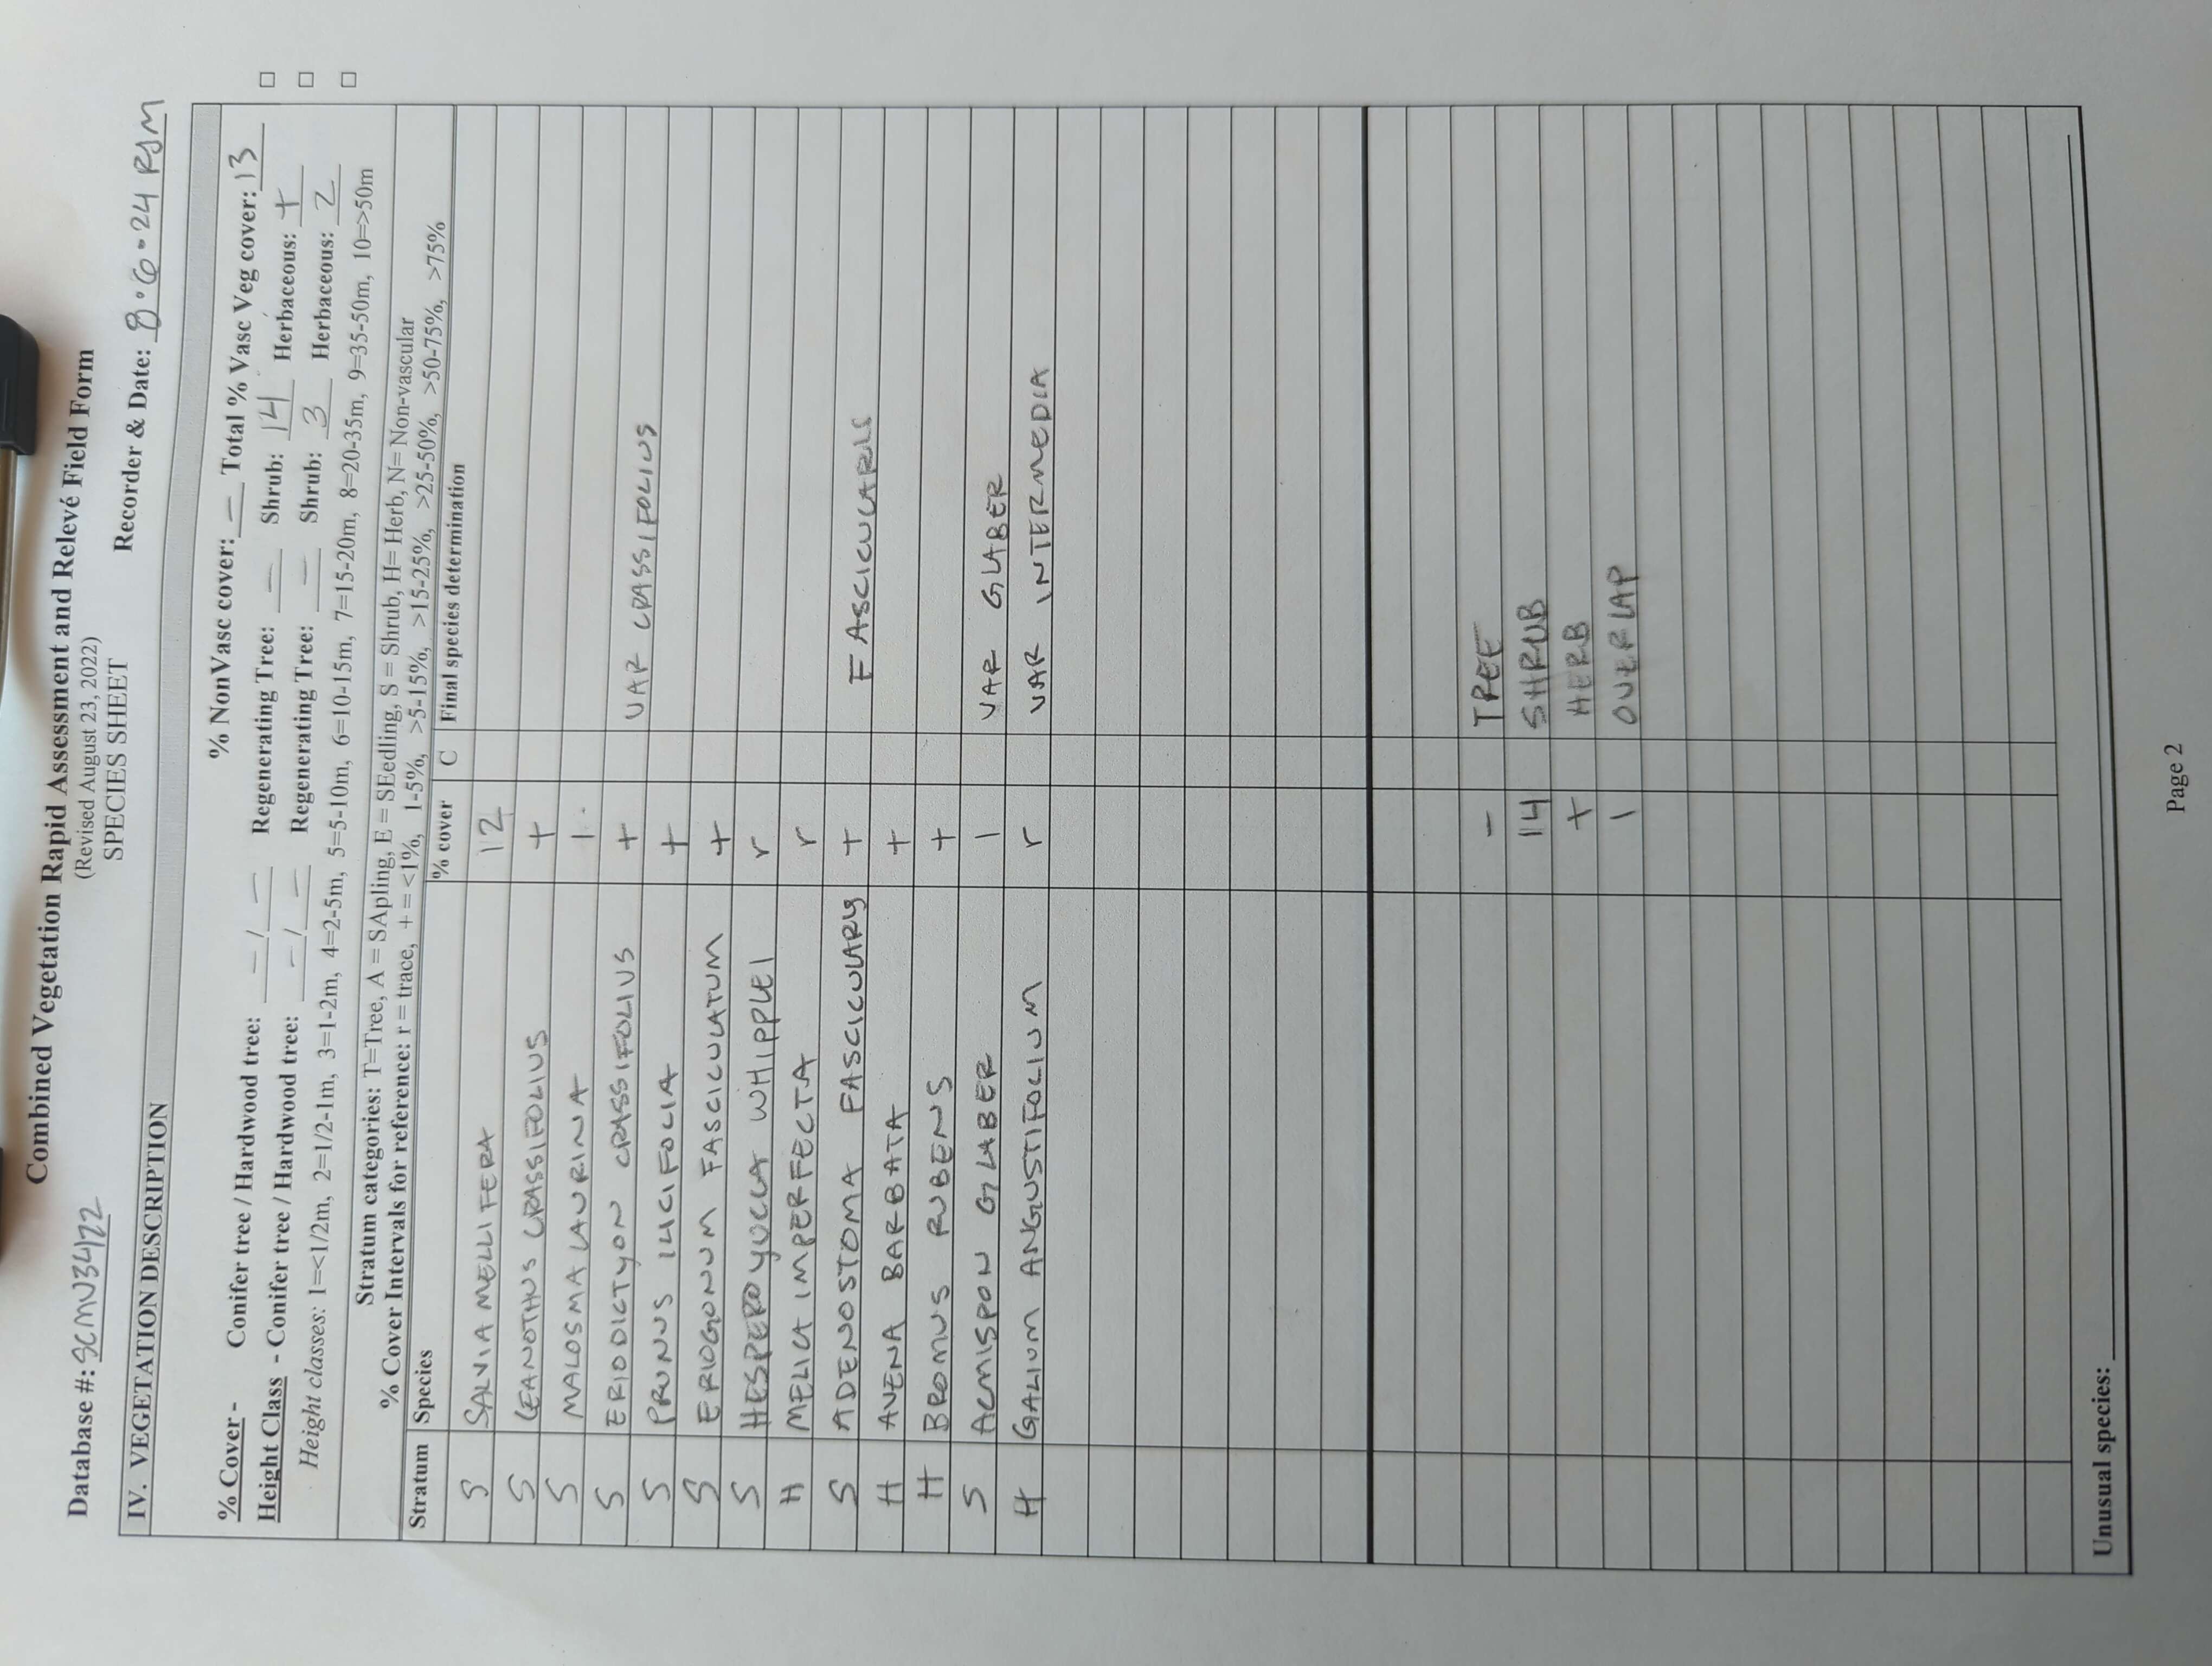 Combined Vegetation Rapid Assessment and Relevé Field Form
(Revised August 23, 2022)
SPECIES SHEET
Database #: SCMU3422 Recorder & Date: 8·6·24 RJM
IV. VEGETATION DESCRIPTION
% NonVasc cover: — Total % Vasc Veg cover: 13
% Cover - Conifer tree / Hardwood tree: — / — Regenerating Tree: — Shrub: 14 Herbaceous: + □
Height Class - Conifer tree / Hardwood tree: — / — Regenerating Tree: — Shrub: 3 Herbaceous: 2 □
Height classes: 1=<1/2m, 2=1/2-1m, 3=1-2m, 4=2-5m, 5=5-10m, 6=10-15m, 7=15-20m, 8=20-35m, 9=35-50m, 10=>50m □
Stratum categories: T=Tree, A = SApling, E = SEedling, S = Shrub, H= Herb, N= Non-vascular
% Cover Intervals for reference: r = trace, + = <1%, 1-5%, >5-15%, >15-25%, >25-50%, >50-75%, >75%
Stratum Species % cover C Final species determination
S SALVIA MELLIFERA 12
S CEANOTHUS CRASSIFOLIUS +
S MALOSMA LAURINA 1
S ERIODICTYON CRASSIFOLIUS + VAR CRASSIFOLIUS
S PRUNUS ILICIFOLIA +
S ERIOGONUM FASCICULATUM +
S HESPEROYUCCA WHIPPLEI r
H MELICA IMPERFECTA r
S ADENOSTOMA FASCICULARIS + FASCICULARIS
H AVENA BARBATA +
H BROMUS RUBENS +
S ACMISPON GLABER 1 VAR GLABER
H GALIUM ANGUSTIFOLIUM r VAR INTERMEDIA
- TREE
14 SHRUB
+ HERB
1 OVERLAP
Unusual species:
Page 2